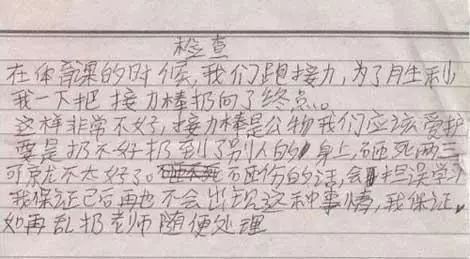 检查
在体育课的时候,我们跑接力,为了月生利
我一下把接力棒扔向了终点。
这样非常不好,接力棒是公物我们应该爱护
要是扔不好扔到了别人的身上,砸死两三
可京尤不太好了。砸伤的话,会担误学习
我保证已后再也不会出现这种事情,我保证。
如再乱扔老师随便处理